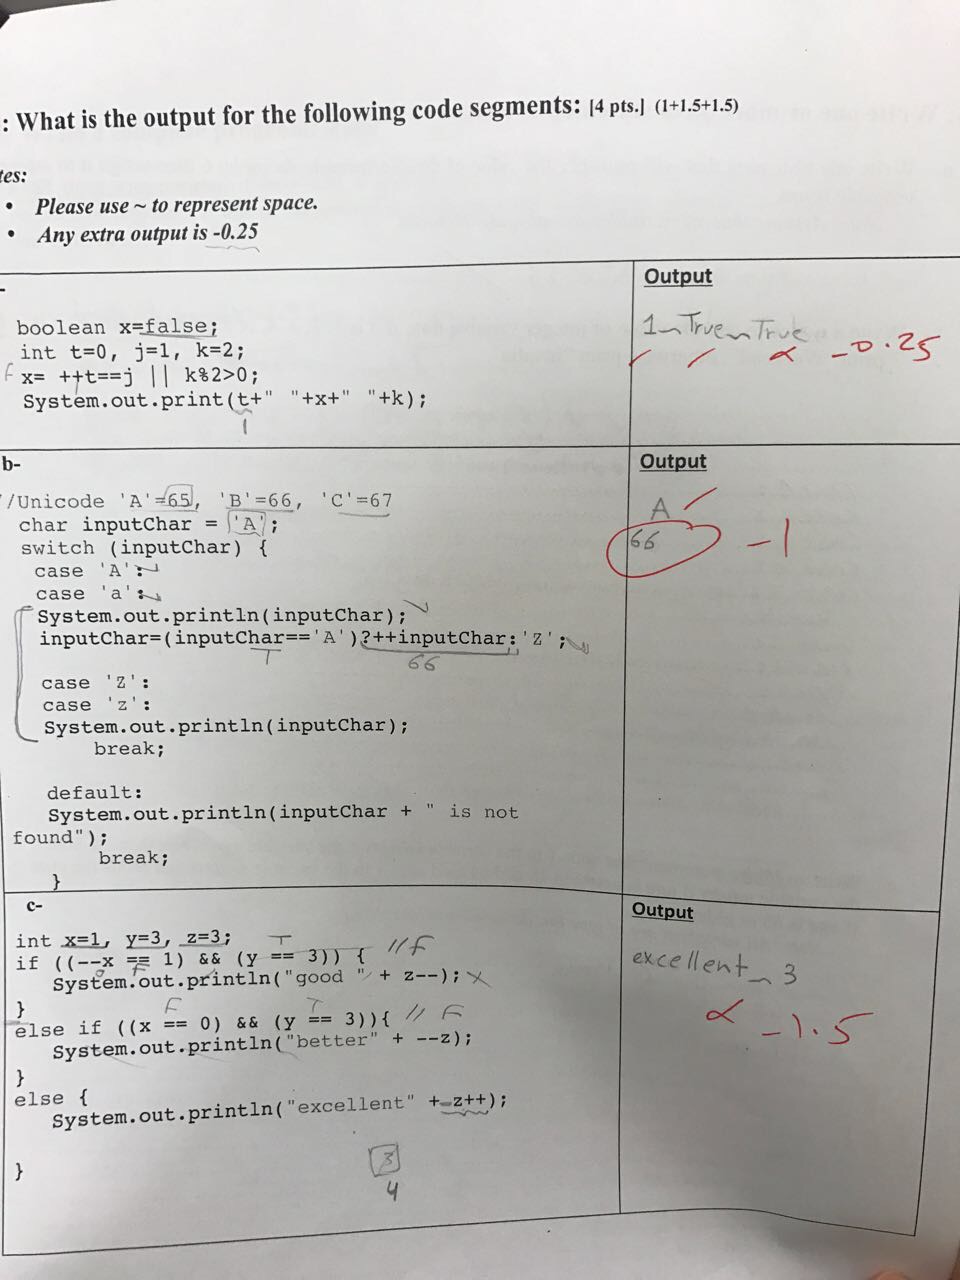 : What is the output for the following code segments: [4 pts.] (1+1.5+1.5)
tes:
• Please use ~ to represent space.
• Any extra output is -0.25
-
Output
boolean x=false;
int t=0, j=1, k=2;
F x= ++t==j || k%2>0;
System.out.print(t+" "+x+" "+k);
1
1~True~True
-0.25
b-
Output
/Unicode 'A'=65, 'B'=66, 'C'=67
char inputChar = 'A';
switch (inputChar) {
case 'A':
case 'a':
System.out.println(inputChar);
inputChar=(inputChar=='A')?++inputChar:'Z';
T 66
case 'Z':
case 'z':
System.out.println(inputChar);
break;
default:
System.out.println(inputChar + " is not
found");
break;
}
A
66 -1
c-
Output
int x=1, y=3, z=3; T
if ((--x == 1) && (y == 3)) { //F
0 F
System.out.println("good " + z--); x
}
F T
else if ((x == 0) && (y == 3)){ // F
System.out.println("better" + --z);
}
else {
System.out.println("excellent" + z++);
}
3
4
excellent~3
-1.5